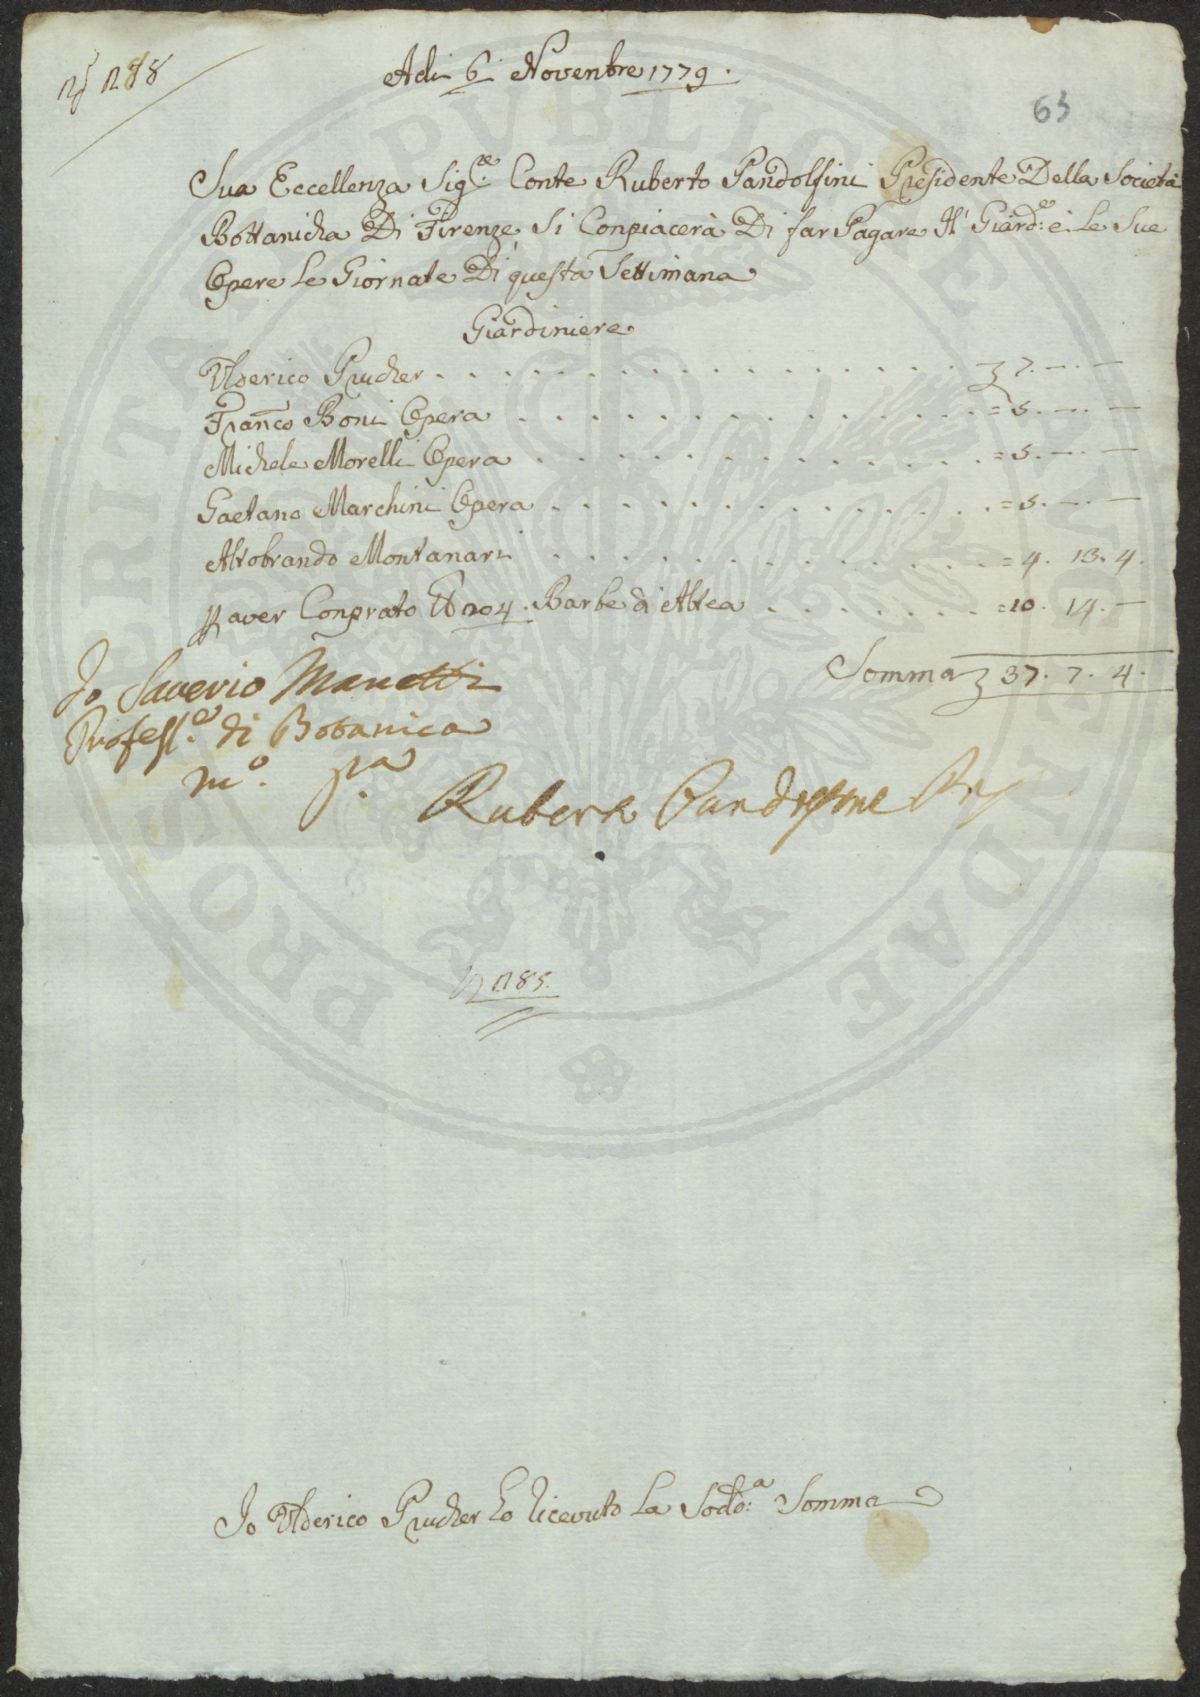 n 188
Adi 6 Novenbre 1779.
63
Sua Eccellenza Sig.re Conte Ruberto Pandolfini Presidente Della Società
Bottanicha Di Firenze Si Conpiacerà Di far Pagare Il Giard.e è Le Sue
Opere Le Giornate Di questa Settimana
Giardiniere
Ulderico Prucher . . . . . . . . . . . . . . . . 7. — . —
Franco Boni Opera . . . . . . . . . . . . . . = 5. — . —
Michele Morelli Opera . . . . . . . . . . . . . = 5. — . —
Gaetano Marchini Opera . . . . . . . . . . . . . = 5. — . —
Altobrando Montanari . . . . . . . . . . . . . = 4. 13. 4.
aver Conprato 204. Barbe di Altea . . . . . . . = 10. 14. —
Somma 37. 7. 4.
Io Saverio Manetti
Profess.e di Botanica
m.o p.a
Ruberto Pandolfini
185.
Io Ulderico Prucher ho ricevuto La Sod.a Somma
PROSPERITATI PUBLICAE AUGENDAE